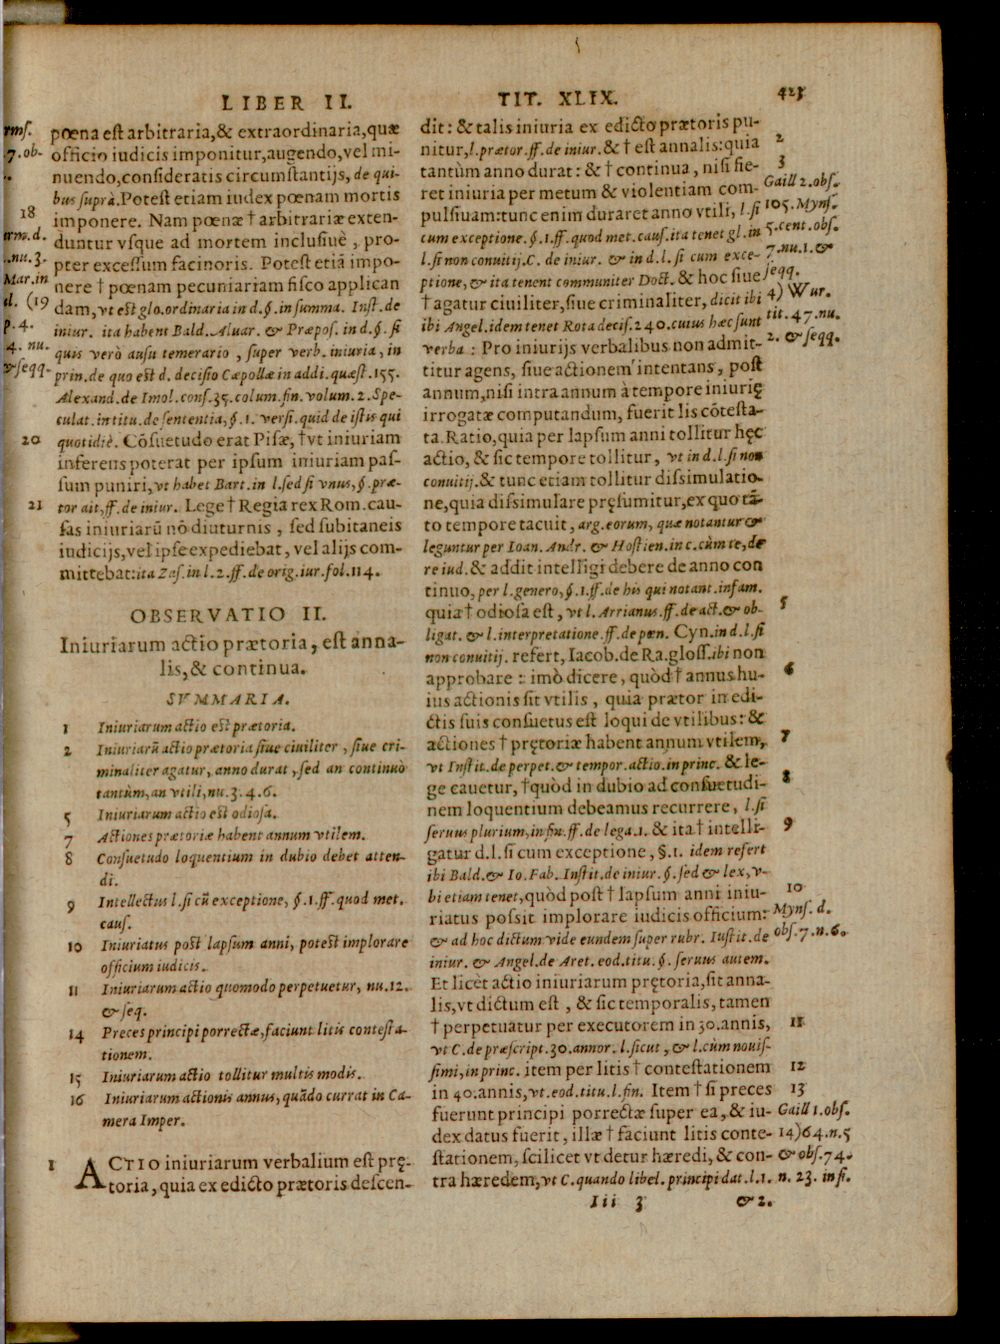 LIBER II. TIT. XLIX. 423
pœna est arbitraria,& extraordinaria,quæ
officio iudicis imponitur,augendo,vel mi-
nuendo,consideratis circumstantijs, de qui-
bus suprà.Potest etiam iudex pœnam mortis
imponere. Nam pœnæ † arbitrariæ exten-
duntur vsque ad mortem inclusiuè , pro-
pter excessum facinoris. Potest etiã impo-
nere † pœnam pecuniariam fisco applican
dam, vt est glo.ordinaria in d.§.in summa. Inst.de
iniur. ita habent Bald. Aluar. & Præpos. in d.§. si
quis verò ausu temerario , super verb. iniuria , in
prin.de quo est d. decisio Cæpollæ in addi.quæst.155.
Alexand.de Imol.cons.35.colum.fin.volum.2.Spe-
culat.in titu.de sententia,§.1. versi.quid de istis qui
quotidiè. Cõsuetudo erat Pisæ, †vt iniuriam
inferens poterat per ipsum iniuriam pas-
sum puniri, vt habet Bart.in l.sed si vnus,§.præ-
tor ait,ff.de iniur. Lege † Regia rex Rom.cau-
sas iniuriarũ nõ diuturnis , sed subitaneis
iudicijs,vel ipse expediebat, vel alijs com-
mittebat:ita Zas.in l.2.ff.de orig.iur.fol.114.
rms.
7.ob-
18
..nu.3.
Mar.in
(19
p.4.
4. nu.
& seqq.
20
21
OBSERVATIO II.
Iniuriarum actio prætoria, est anna-
lis,& continua.
SVMMARIA.
1 Iniuriarum actio est prætoria.
2 Iniuriarũ actio prætoria siue ciuiliter , siue cri-
minaliter agatur, anno durat , sed an continuò
tantùm,an vtili,nu.3.4.6.
5 Iniuriarum actio est odiosa.
7 Actiones prætoriæ habent annum vtilem.
8 Consuetudo loquentium in dubio debet atten-
di.
9 Intellectus l.si cũ exceptione, §.1.ff.quod met.
caus.
10 Iniuriatus post lapsum anni, potest implorare
officium iudicis.
11 Iniuriarum actio quomodo perpetuetur, nu.12.
& seq.
14 Preces principi porrectæ,faciunt litis contesta-
tionem.
15 Iniuriarum actio tollitur multis modis.
16 Iniuriarum actionis annus,quãdo currat in Ca-
mera Imper.
1 ACTIO iniuriarum verbalium est prę-
toria,quia ex edicto prætoris descen-
dit: & talis iniuria ex edicto prætoris pu-
nitur,l.prætor.ff.de iniur.& † est annalis:quia
tantùm anno durat: & † continua, nisi fie-
ret iniuria per metum & violentiam com-
pulsiuam:tunc enim duraret anno vtili, l.si
cum exceptione.§.1.ff.quod met.caus.ita tenet gl.in
l.si non conuitij.C. de iniur. & in d.l. si cum exce-
ptione,& ita tenent communiter Doct.& hoc siue
† agatur ciuiliter,siue criminaliter, dicit ibi
ibi Angel.idem tenet Rota decis.240.cuius hæc sunt
verba : Pro iniurijs verbalibus non admit-
titur agens, siue actionem intentans, post
annum,nisi intra annum à tempore iniurię
irrogatæ computandum, fuerit lis cõtesta-
ta.Ratio,quia per lapsum anni tollitur hęc
actio, & sic tempore tollitur , vt in d.l.si non
conuitij.& tunc etiam tollitur dissimulatio-
ne,quia dissimulare pręsumitur,ex quo tã-
to tempore tacuit , arg.eorum, quæ notantur &
leguntur per Ioan. Andr. & Hostien.in c.cùm te,de
re iud.& addit intelligi debere de anno con
tinuo, per l.genero,§.1.ff.de his qui notant.infam.
quia † odiosa est, vt l. Arrianus.ff.de act.& ob-
ligat. & l.interpretatione.ff.de pœn. Cyn.in d.l.si
non conuitij. refert, Iacob.de Ra.gloss.ibi non
approbare : imò dicere , quòd † annus hu-
ius actionis sit vtilis , quia prætor in edi-
ctis suis consuetus est loqui de vtilibus: &
actiones † prętoriæ habent annum vtilem,
vt Instit.de perpet.& tempor.actio.in princ. & le-
ge cauetur, †quòd in dubio ad consuetudi-
nem loquentium debeamus recurrere, l.si
seruus plurium,in fin.ff.de lega.1. & ita † intelli-
gatur d.l. si cum exceptione, §.1. idem refert
ibi Bald.& Io.Fab. Instit.de iniur.§.sed & lex,v-
bi etiam tenet,quòd post † lapsum anni iniu-
riatus possit implorare iudicis officium:
& ad hoc dictum vide eundem super rubr. Iustit.de
iniur. & Angel.de Aret. eod.titu.§. seruus autem.
Et licèt actio iniuriarum prętoria,sit anna-
lis,vt dictum est , & sic temporalis, tamen
† perpetuatur per executorem in 30.annis,
vt C.de præscript.30.annor. l.sicut , & l.cùm nouis-
simi,in princ. item per litis † contestationem
in 40.annis,vt.eod.titu.l.fin. Item † si preces
fuerunt principi porrectæ super ea, & iu-
dex datus fuerit, illæ † faciunt litis conte-
stationem, scilicet vt detur hæredi, & con-
tra hæredem,vt C.quando libel.principi dat.l.1.
2
3
Gaill 2.obs.
105.Myns.
5.cent.obs.
7.nu.1.&
seqq.
4) Wur.
tit.47.nu.
2. & seqq.
5
6
7
8
9
10
Myns. d.
obs.7.n.6.
11
12
13
Gaill 1.obs.
14)64.n.5
& obs.74.
n. 23. in fi.
Iii 3 & 2.